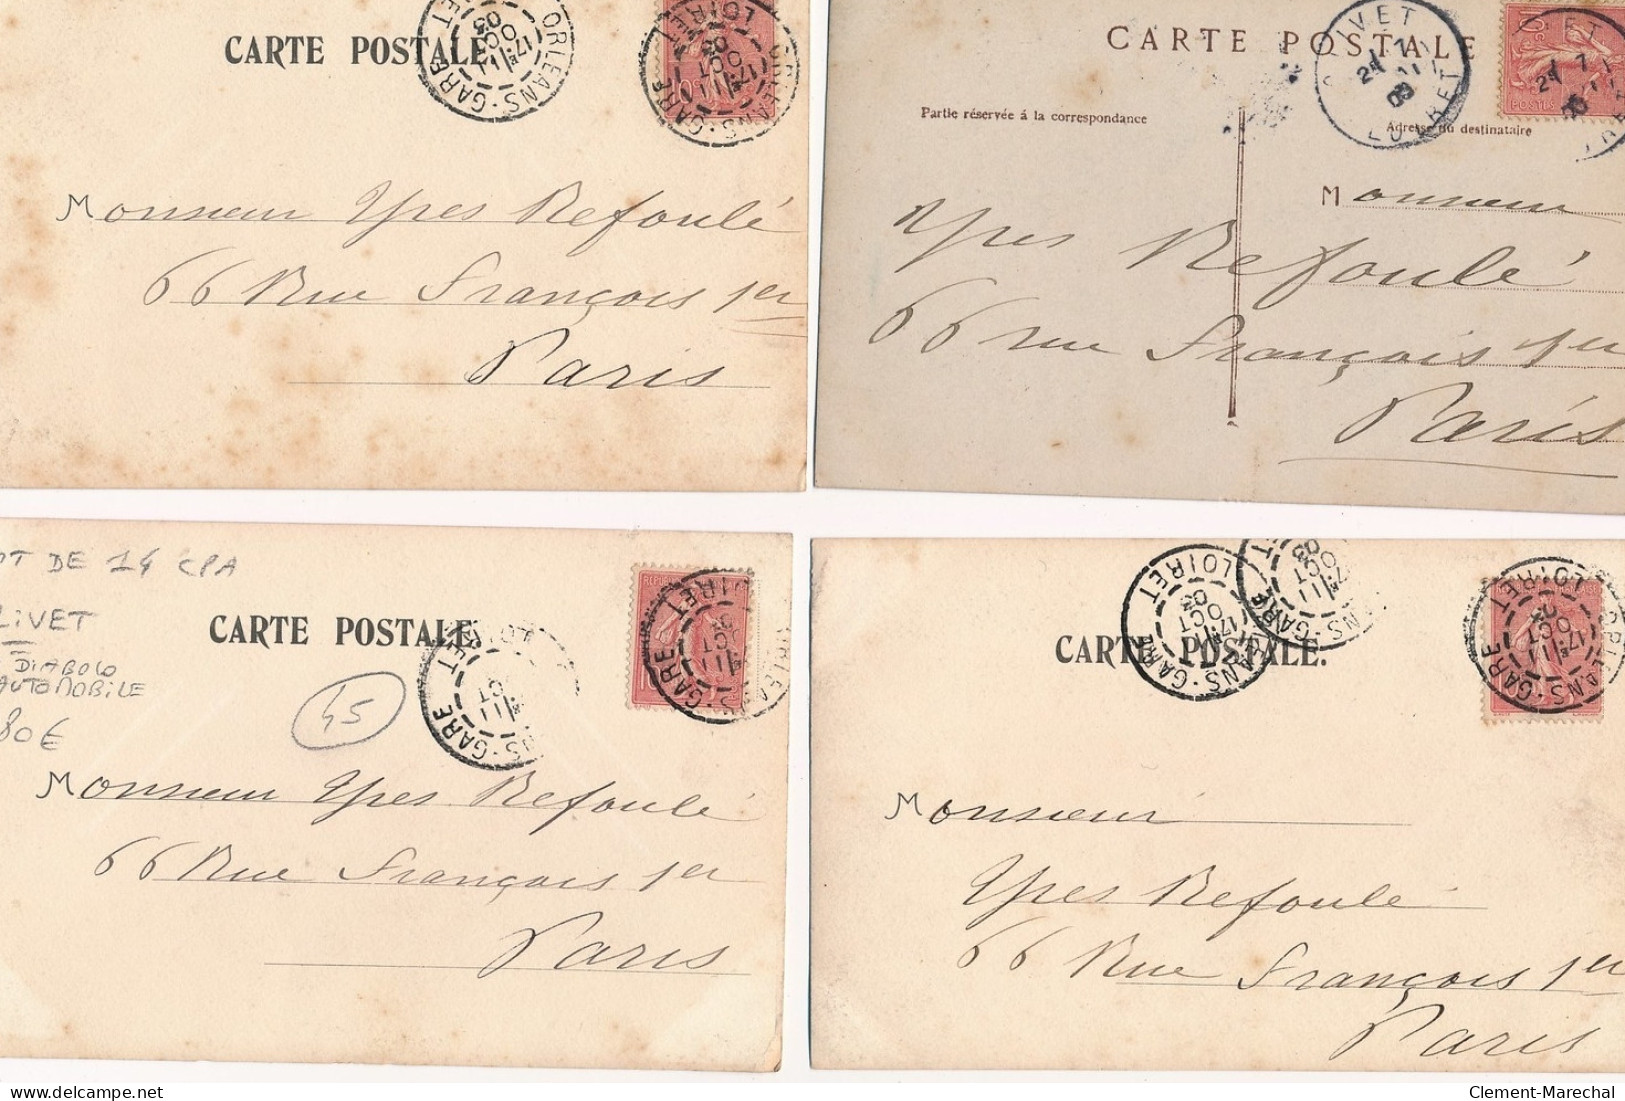 CARTE POSTALE.
ORLEANS-GARE
LOIRET
17E 11
OCT
03
ORLEANS-GARE
LOIRET
17E 11
OCT
03
Monsieur Ypres Refoulé
66 Rue François 1er
Paris
CARTE POSTALE
OLIVET
LOIRET
POSTES
Partie réservée à la correspondance
Adresse du destinataire
Monsieur
Ypres Refoulé
66 rue François 1er
Paris
DE 14 CPA
LIVET
DIABOLO
AUTOMOBILE
80€
CARTE POSTALE.
45
GARE
11
ORLEANS-GARE
LOIRET
11
OCT
Monsieur Ypres Refoulé
66 Rue François 1er
Paris
CARTE POSTALE.
ANS-GARE
LOIRET
17E 11
OCT
03
NS-GARE
11
OCT
03
ORLEANS-GARE
LOIRET
17E 11
OCT
Monsieur
Ypres Refoulé
66 Rue François 1er
Paris
Clement-Marechal